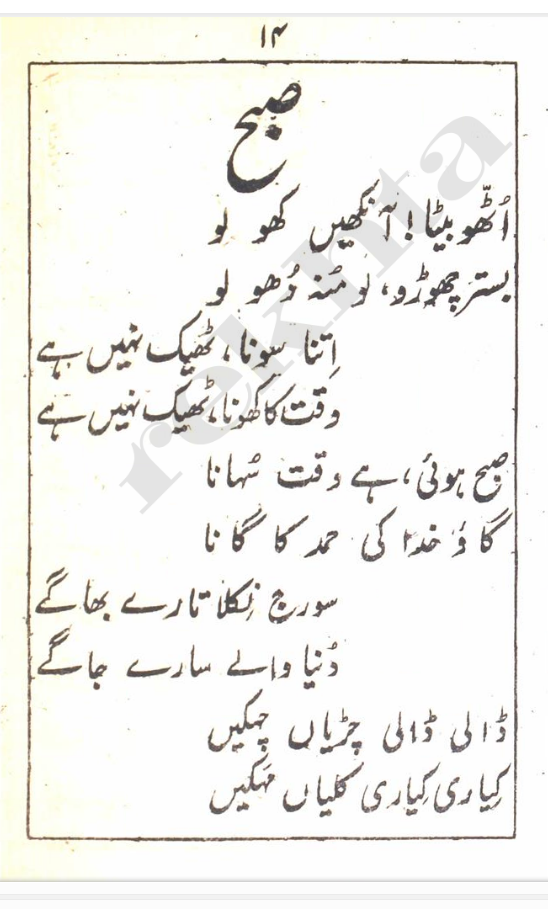 ۱۴
صبح
اُٹّھو بیٹا! آنکھیں کھو لو
بستر چھوڑو، لو مُنہ دُھو لو
اِتنا سونا، ٹھیک نہیں ہے
وقت کا کھونا، ٹھیک نہیں ہے
صبح ہوئی، ہے وقت سُہانا
گاؤ خدا کی حمد کا گانا
سورج نِکلا تارے بھاگے
دُنیا والے سارے جاگے
ڈالی ڈالی چڑیاں چہکیں
کیاری کیاری کلیاں مہکیں
rekhta